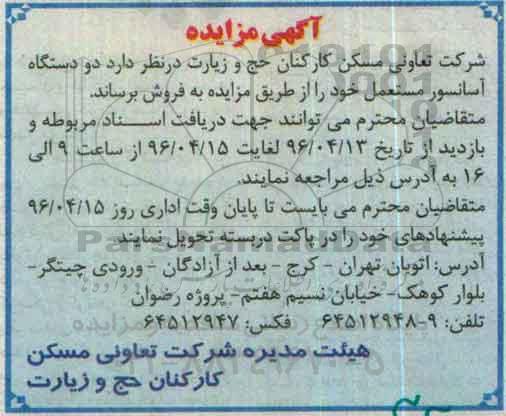 آگهی مزایده
شرکت تعاونی مسکن کارکنان حج و زیارت درنظر دارد دو دستگاه
آسانسور مستعمل خود را از طریق مزایده به فروش برساند.
متقاضیان محترم می توانند جهت دریافت اسناد مربوطه و
بازدید از تاریخ ۹۶/۰۴/۱۳ لغایت ۹۶/۰۴/۱۵ از ساعت ۹ الی
۱۶ به آدرس ذیل مراجعه نمایند.
متقاضیان محترم می بایست تا پایان وقت اداری روز ۹۶/۰۴/۱۵
پیشنهادهای خود را در پاکت دربسته تحویل نمایند.
آدرس: اتوبان تهران - کرج - بعد از آزادگان - ورودی چیتگر-
بلوار کوهک- خیابان نسیم هفتم- پروژه رضوان
تلفن: ۹-۶۴۵۱۲۹۴۸ فکس: ۶۴۵۱۲۹۴۷
هیئت مدیره شرکت تعاونی مسکن
کارکنان حج و زیارت